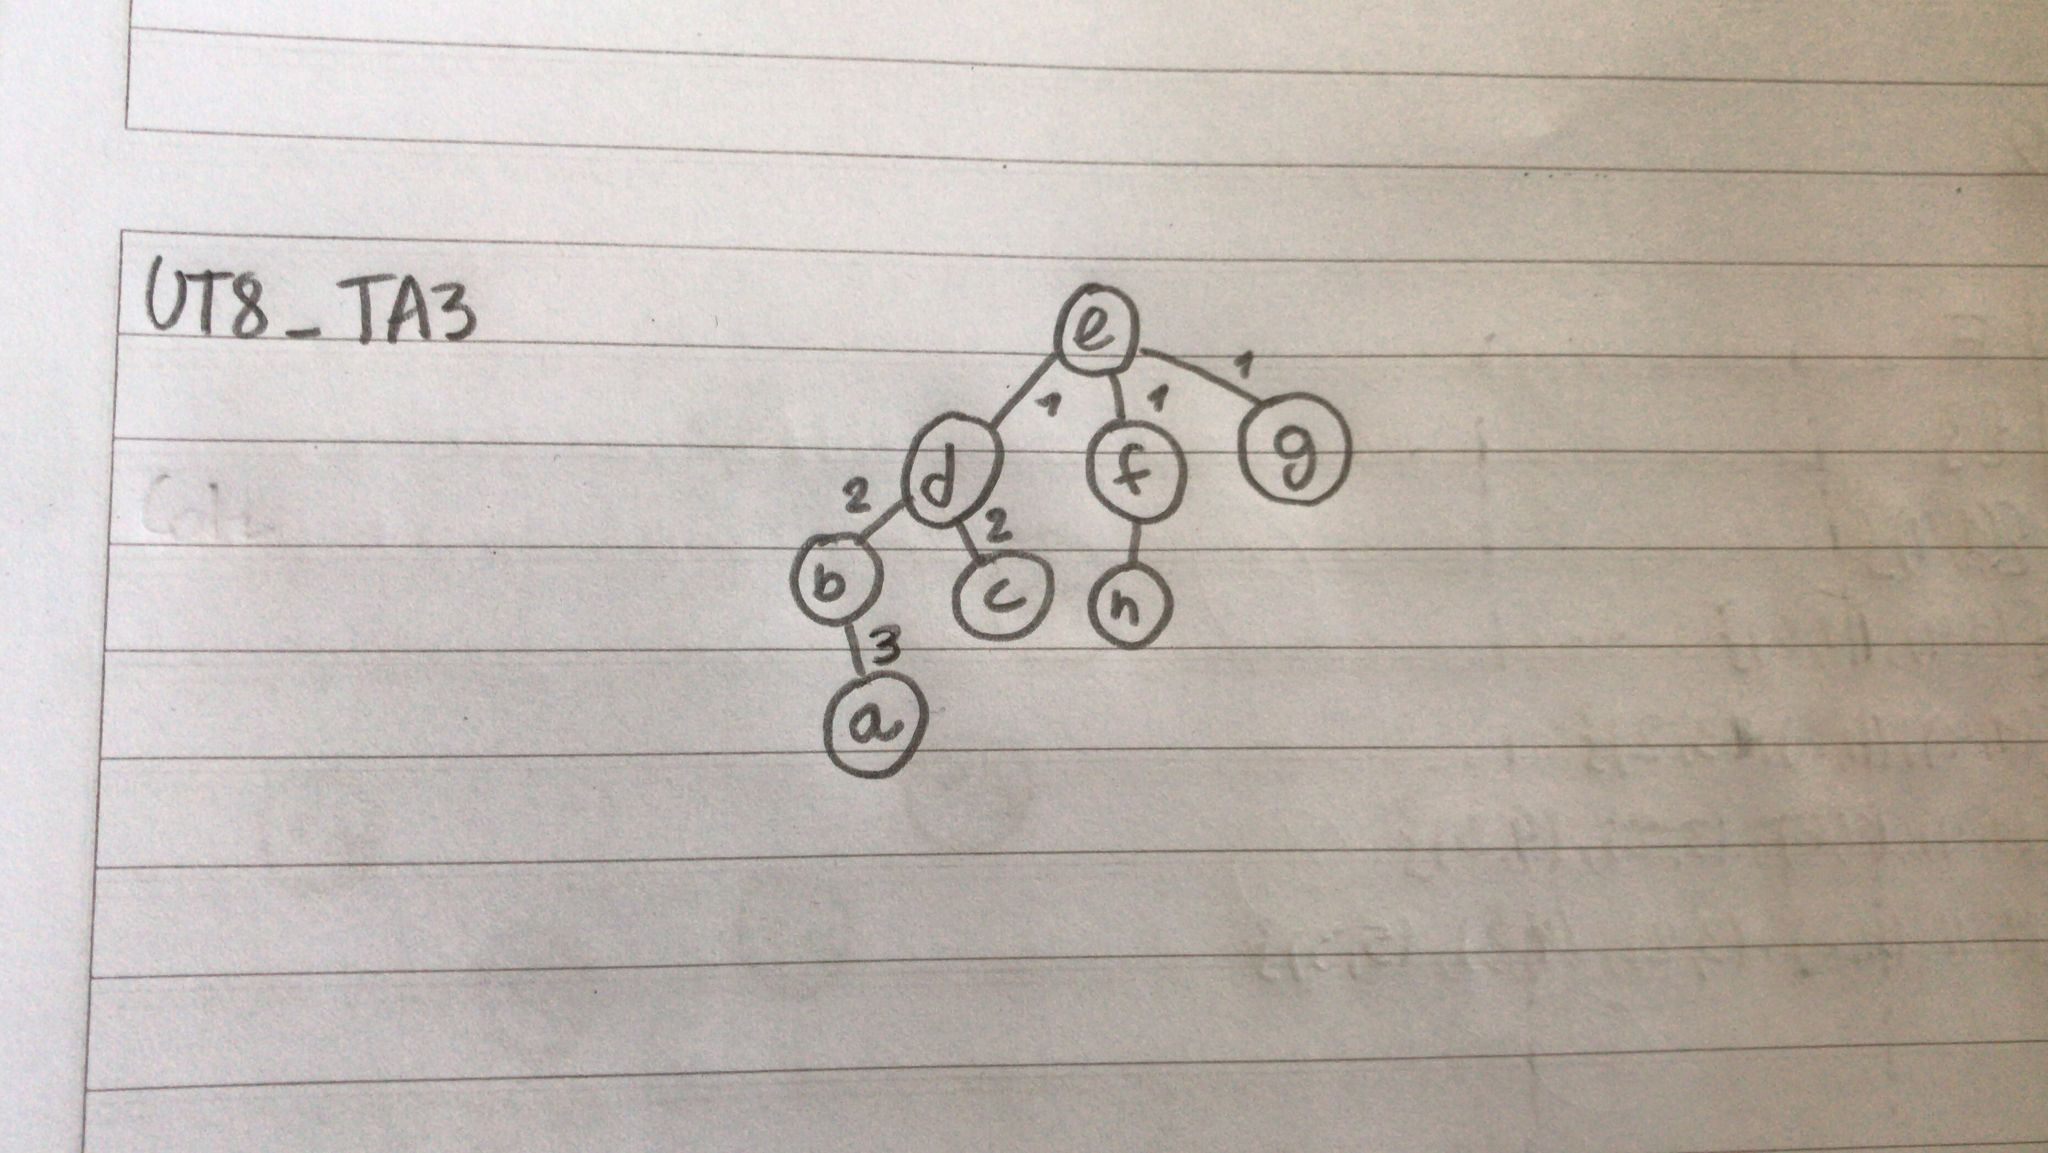 UT8_TA3
e
1 1 1
d f g
2 2
b c h
3
a